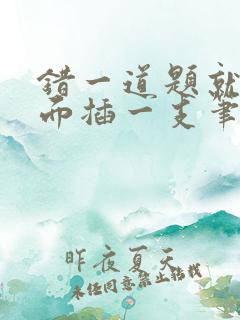 错一道题就
而插一支笔
昨夜夏天
未经同意禁止转载